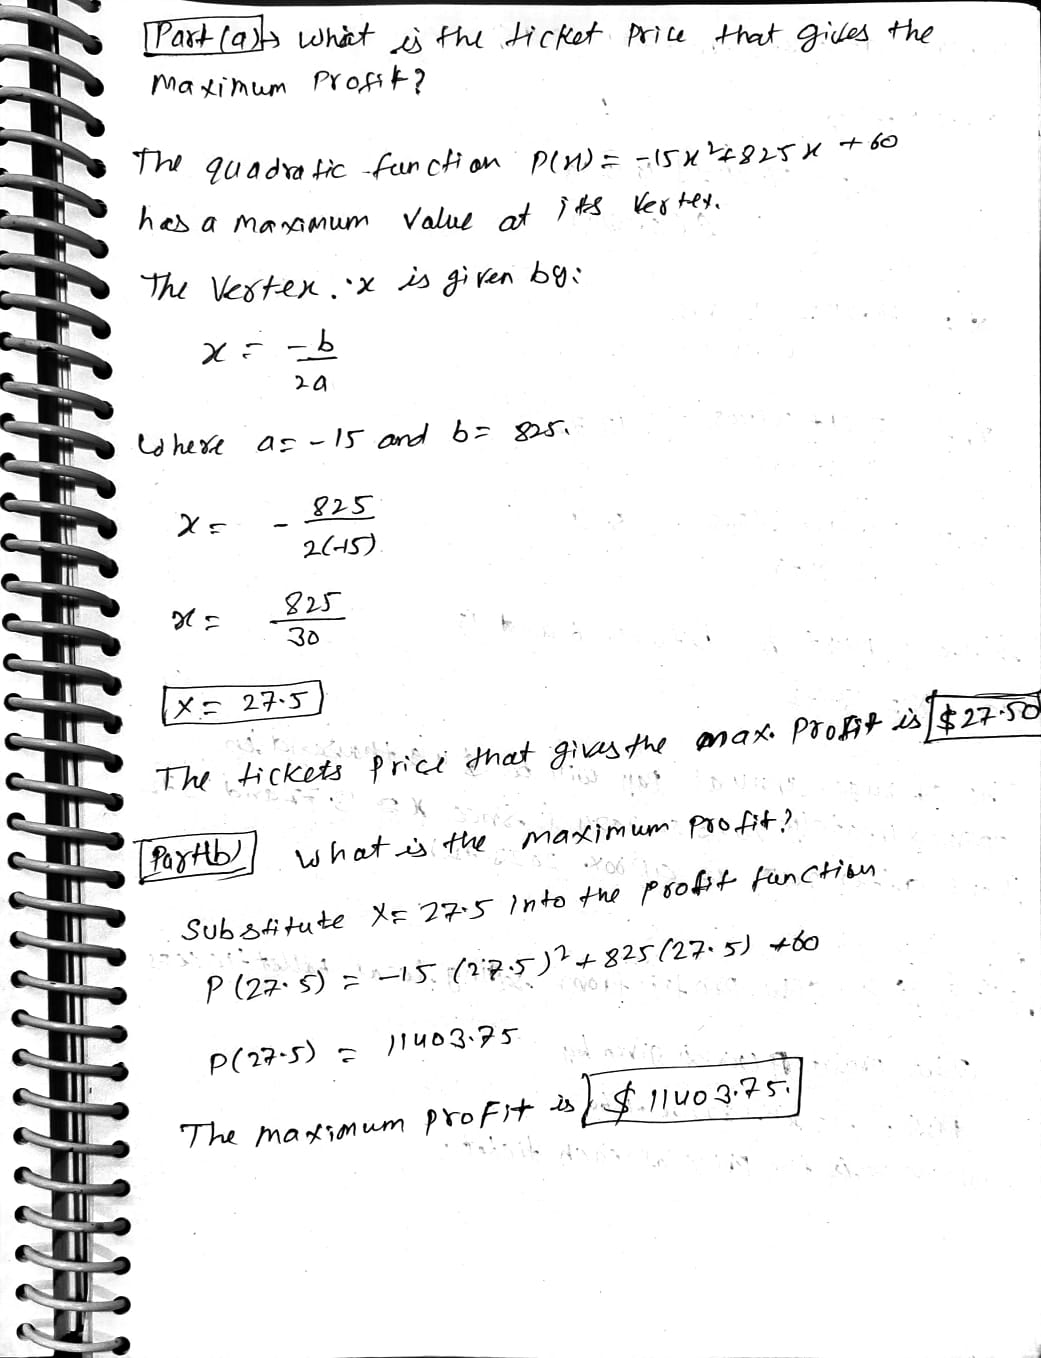 Part (a)→ what is the ticket price that gives the
maximum profit?
The quadratic function P(x) = -15x²+825x + 60
has a maximum value at its vertex.
The Vertex. x is given by:
x = -b/2a
Where a = -15 and b = 825.
x = - 825/2(-15)
x = 825/30
x = 27.5
The tickets price that gives the max. profit is $27.50
Part(b) What is the maximum profit?
Substitute x = 27.5 into the profit function
P(27.5) = -15 (27.5)² + 825(27.5) +60
P(27.5) = 11403.75
The maximum profit is $11403.75.